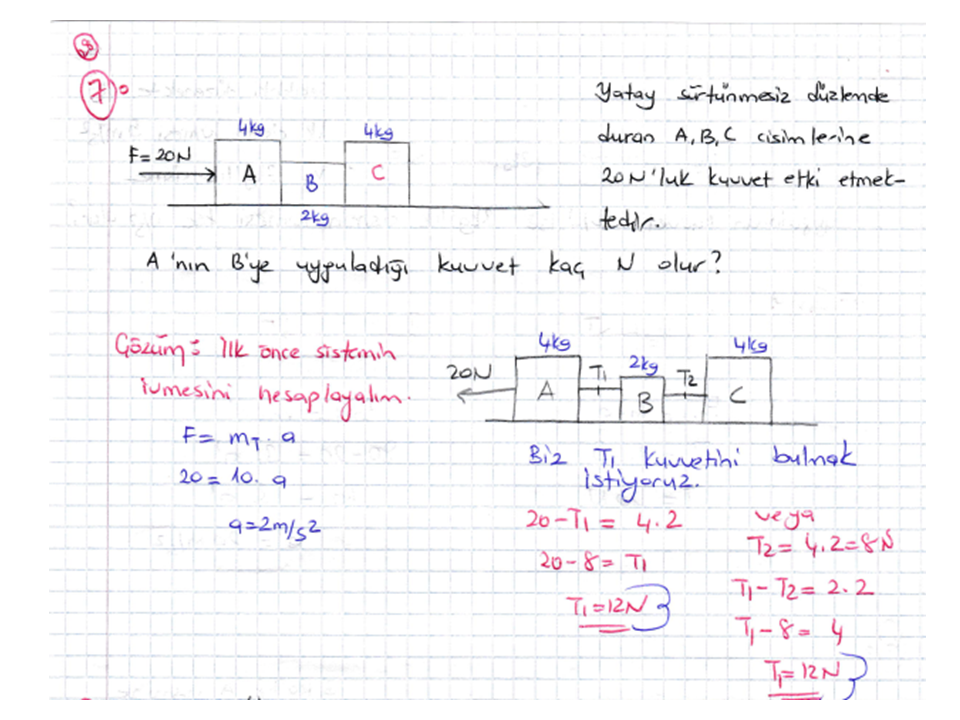 8
7°
4kg 4kg
F=20N A B C
2kg
Yatay sürtünmesiz düzlemde
duran A,B,C cisimlerine
20N'luk kuvvet etki etmek-
tedir.
A'nın B'ye uyguladığı kuvvet kaç N olur?
Çözüm: İlk önce sistemin
ivmesini hesaplayalım.
F= mT. a
20= 10. a
a=2m/s2
4kg 2kg 4kg
20N A T1 B T2 C
Biz T1 kuvvetini bulmak
istiyoruz.
20-T1= 4.2
20-8= T1
T1=12N
veya
T2= 4.2=8N
T1-T2= 2.2
T1-8= 4
T1=12N